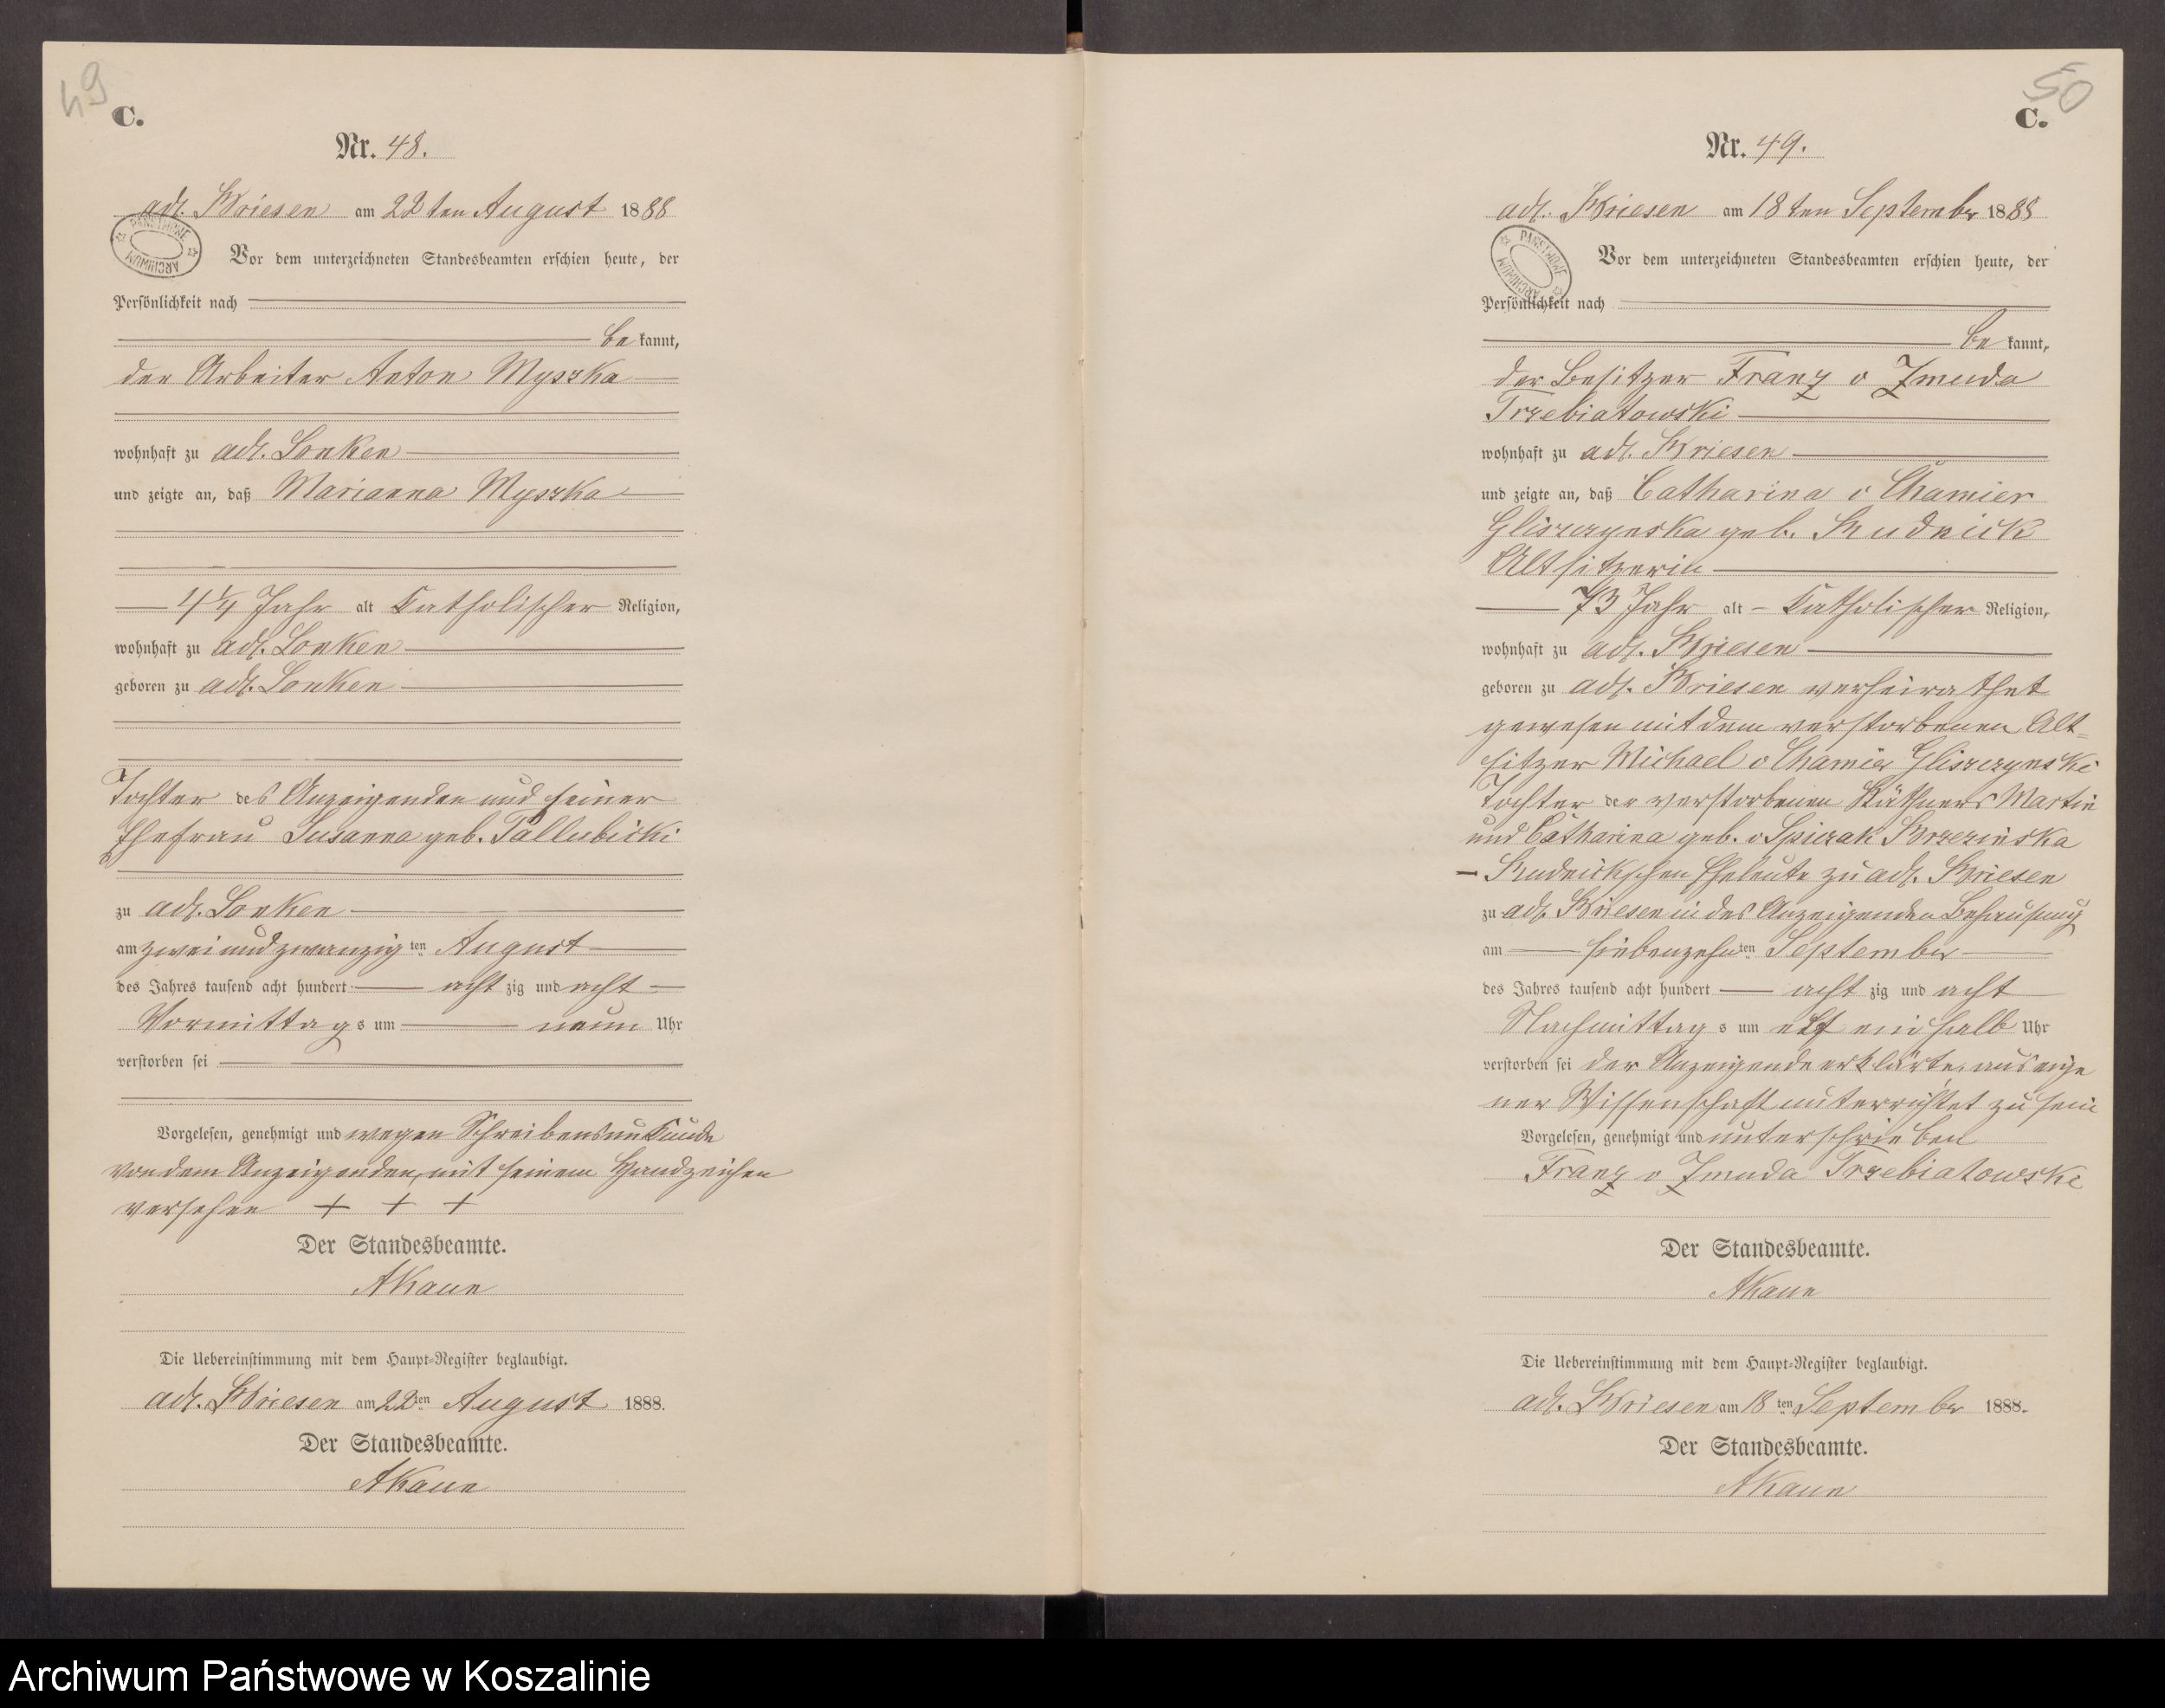 49
C.
Nr. 48.
adl. Briesen am 22ten August 1888
PAŃSTWOWE ARCHIWUM
Vor dem unterzeichneten Standesbeamten erschien heute, der
Persönlichkeit nach
be kannt,
der Arbeiter Anton Myszka
wohnhaft zu adl. Lonken
und zeigte an, daß Marianna Myszka
4 1/4 Jahr alt Katholischer Religion,
wohnhaft zu adl. Lonken
geboren zu adl. Lonken
Tochter des Anzeigenden und seiner
Ehefrau Susanna geb. Pallubicki
zu adl. Lonken
am zwei und zwanzig ten August
des Jahres tausend acht hundert acht zig und acht
Vormittag s um neun Uhr
verstorben sei
Vorgelesen, genehmigt und wegen Schreibensunkunde
von dem Anzeigenden mit seinem Handzeichen
versehen + + +
Der Standesbeamte.
AKaun
Die Uebereinstimmung mit dem Haupt-Register beglaubigt.
adl. Briesen am 22ten August 1888.
Der Standesbeamte.
AKaun
50
C.
Nr. 49.
adl. Briesen am 18ten September 1888
PAŃSTWOWE ARCHIWUM
Vor dem unterzeichneten Standesbeamten erschien heute, der
Persönlichkeit nach
be kannt,
der Besitzer Franz v Zmuda
Trzebiatowski
wohnhaft zu adl. Briesen
und zeigte an, daß Catharina v Chamier
Gliszczynska geb. Rudnick
Altsitzerin
73 Jahr alt – Katholischer Religion,
wohnhaft zu adl. Briesen
geboren zu adl. Briesen verheirathet
gewesen mit dem verstorbenen Alt-
sitzer Michael v Chamier Gliszczynski
Tochter der verstorbenen Käthners Martin
und Catharina geb. v Spiczak Brzezinska
– Rudnickschen Eheleute zu adl. Briesen
zu adl. Briesen in des Anzeigenden Behausung
am siebenzehn ten September
des Jahres tausend acht hundert acht zig und acht
Nachmittag s um elf ein halb Uhr
verstorben sei der Anzeigende erklärte, aus eige
ner Wissenschaft unterrichtet zu sein
Vorgelesen, genehmigt und unterschrieben
Franz v Zmuda Trzebiatowske
Der Standesbeamte.
AKaun
Die Uebereinstimmung mit dem Haupt-Register beglaubigt.
adl. Briesen am 18ten September 1888.
Der Standesbeamte.
AKaun
Archiwum Państwowe w Koszalinie